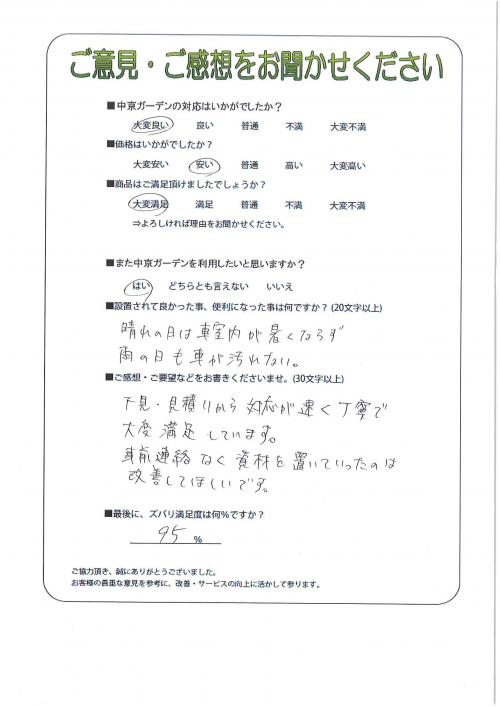 ご意見・ご感想をお聞かせください
■中京ガーデンの対応はいかがでしたか？
大変良い 良い 普通 不満 大変不満
■価格はいかがでしたか？
大変安い 安い 普通 高い 大変高い
■商品はご満足頂けましたでしょうか？
大変満足 満足 普通 不満 大変不満
⇒よろしければ理由をお聞かせください。
■また中京ガーデンを利用したいと思いますか？
はい どちらとも言えない いいえ
■設置されて良かった事、便利になった事は何ですか？(20文字以上)
晴れの日は車室内が暑くならず
雨の日も車が汚れない。
■ご感想・ご要望などをお書きくださいませ。(30文字以上)
下見・見積りから対応が速く丁寧で
大変満足しています。
事前連絡なく資材を置いていったのは
改善してほしいです。
■最後に、ズバリ満足度は何％ですか？
95 ％
ご協力頂き、誠にありがとうございました。
お客様の貴重な意見を参考に、改善・サービスの向上に活かして参ります。